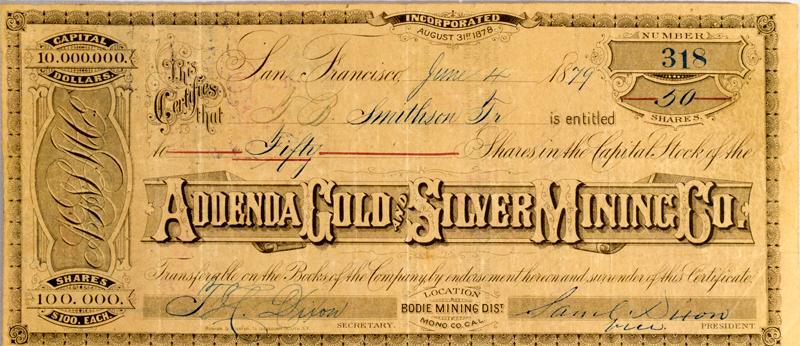 INCORPORATED
AUGUST 31ST 1878
CAPITAL
10.000.000.
DOLLARS
NUMBER
318
50
SHARES.
San Francisco, June 4 1879
This Certifies that J. B. Smithson Tr is entitled
to Fifty Shares in the Capital Stock of the
ADDENDA GOLD AND SILVER MINING CO.
Transferable on the Books of the Company, by endorsement hereon and surrender of this Certificate.
SHARES
100.000.
$100. EACH.
LOCATION
BODIE MINING DIST
MONO CO. CAL.
Dixon
SECRETARY.
Saml Dixon
Vice PRESIDENT